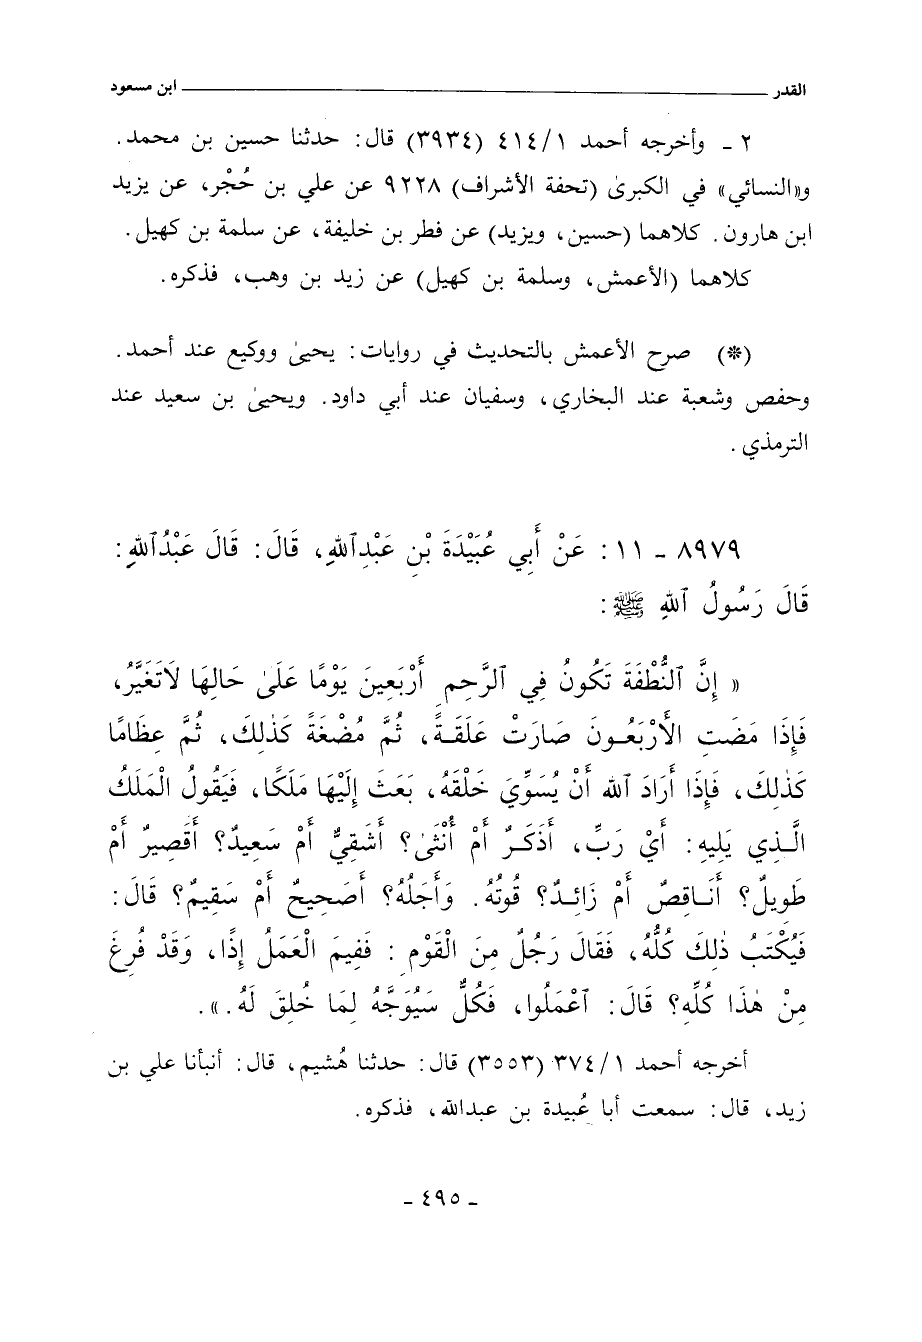 القدر ابن مسعود
٢ - وأخرجه أحمد ٤١٤/١ (٣٩٣٤) قال: حدثنا حسين بن محمد.
و«النسائي» في الكبرىٰ (تحفة الأشراف) ٩٢٢٨ عن علي بن حُجْر، عن يزيد
ابن هارون. كلاهما (حسين، ويزيد) عن فطر بن خليفة، عن سلمة بن كهيل.
كلاهما (الأعمش، وسلمة بن كهيل) عن زيد بن وهب، فذكره.
(*) صرح الأعمش بالتحديث في روايات: يحيىٰ ووكيع عند أحمد.
وحفص وشعبة عند البخاري، وسفيان عند أبي داود. ويحيىٰ بن سعيد عند
الترمذي.
٨٩٧٩ - ١١: عَنْ أَبي عُبَيْدَةَ بْنِ عَبْدِٱللهِ، قَالَ: قَالَ عَبْدُٱللهِ:
قَالَ رَسُولُ ٱللهِ ﷺ:
« إِنَّ ٱلنُّطْفَةَ تَكُونُ فِي ٱلرَّحِمِ أَرْبَعِينَ يَوْمًا عَلَىٰ حَالِهَا لاَتَغَيَّرُ،
فَإِذَا مَضَتِ الأَرْبَعُونَ صَارَتْ عَلَقَةً، ثُمَّ مُضْغَةً كَذٰلِكَ، ثُمَّ عِظَامًا
كَذٰلِكَ، فَإِذَا أَرَادَ ٱلله أَنْ يُسَوِّيَ خَلْقَهُ، بَعَثَ إِلَيْهَا مَلَكًا، فَيَقُولُ الْمَلَكُ
الَّذِي يَلِيهِ: أَيْ رَبِّ، أَذَكَرٌ أَمْ أُنْثَىٰ؟ أَشَقِيٌّ أَمْ سَعِيدٌ؟ أَقَصِيرٌ أَمْ
طَوِيلٌ؟ أَنَاقِصٌ أَمْ زَائِدٌ؟ قُوتُهُ. وَأَجَلُهُ؟ أَصَحِيحٌ أَمْ سَقِيمٌ؟ قَالَ:
فَيُكْتَبُ ذٰلِكَ كُلُّهُ، فَقَالَ رَجُلٌ مِنَ الْقَوْمِ: فَفِيمَ الْعَمَلُ إِذًا، وَقَدْ فُرِغَ
مِنْ هٰذَا كُلِّهِ؟ قَالَ: ٱعْمَلُوا، فَكُلٌّ سَيُوَجَّهُ لِمَا خُلِقَ لَهُ.».
أخرجه أحمد ٣٧٤/١ (٣٥٥٣) قال: حدثنا هُشيم، قال: أنبأنا علي بن
زيد، قال: سمعت أبا عُبيدة بن عبدالله، فذكره.
- ٤٩٥ -